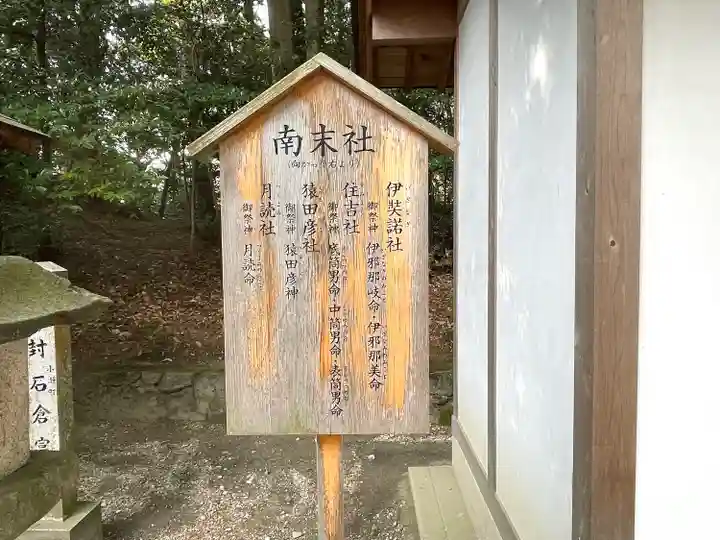 南末社
(向かって右より)
伊奘諾社
御祭神 伊邪那岐命・伊邪那美命
住吉社
御祭神 底筒男命・中筒男命・表筒男命
猿田彦社
御祭神 猿田彦神
月読社
御祭神 月読命
封
石倉
小野町